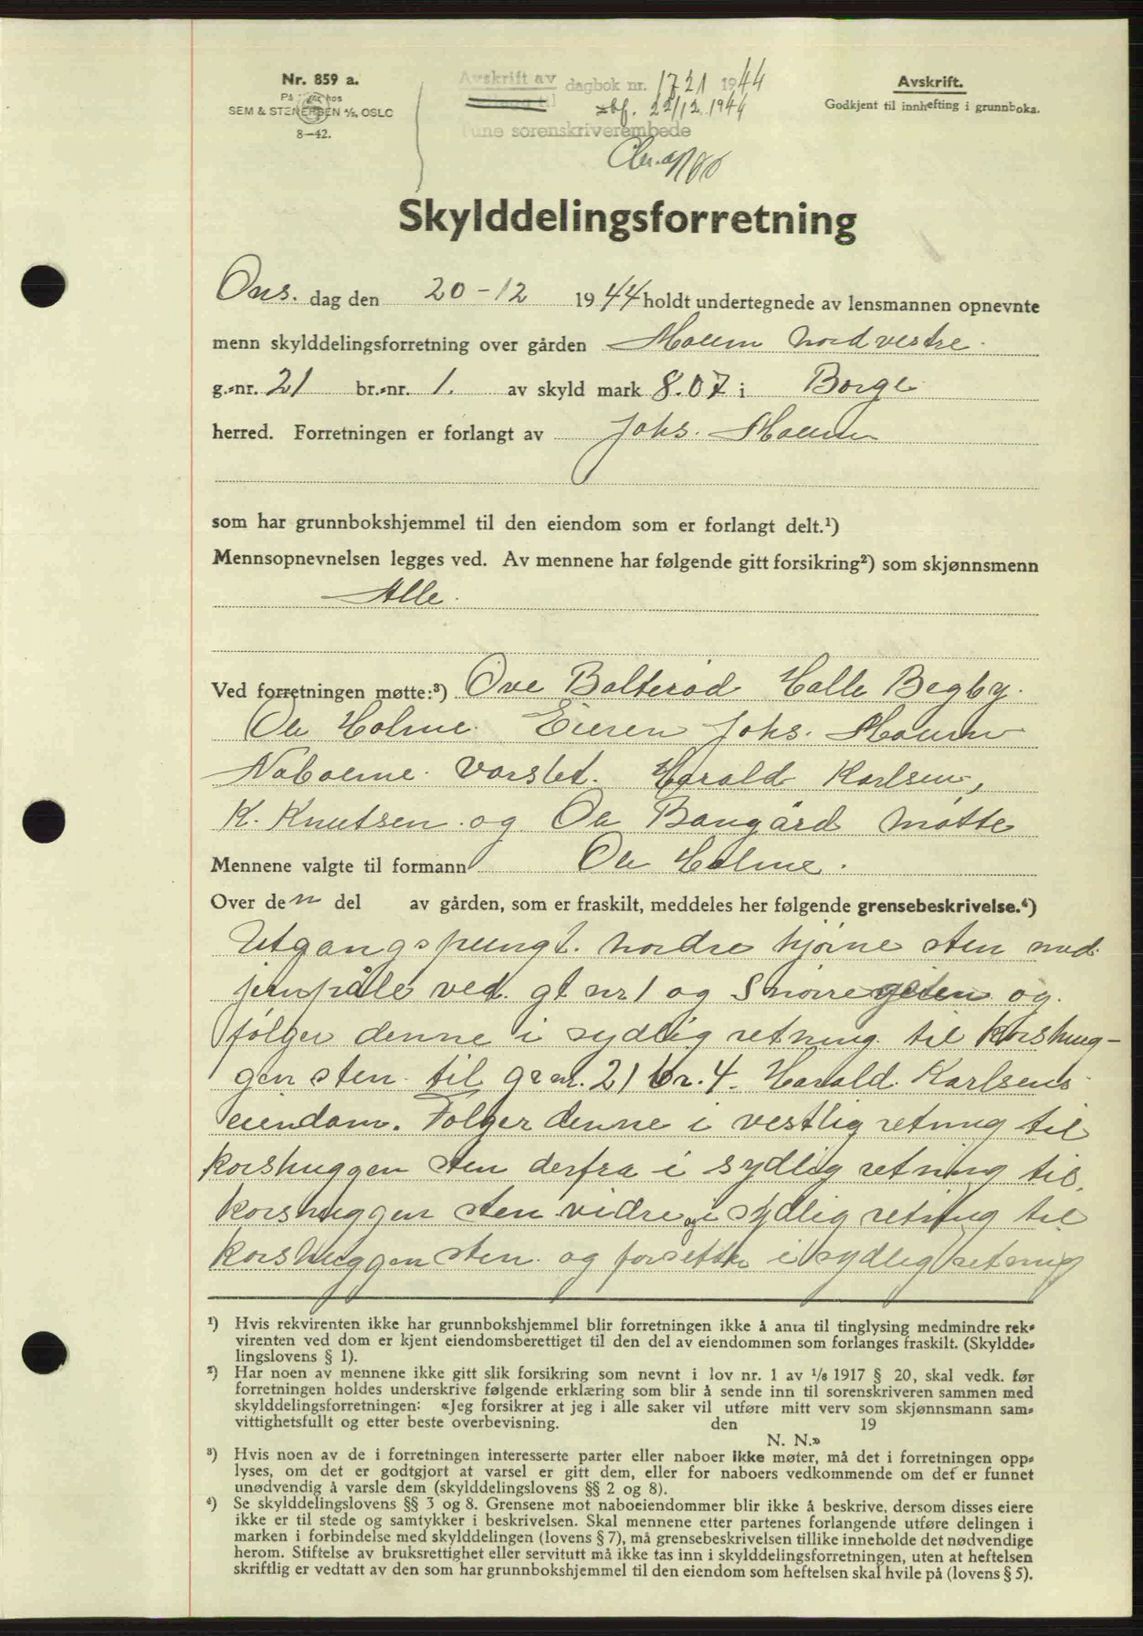 Nr. 859 a.
På lager hos
SEM & STENERSEN A/S, OSLO
8—42.
Avskrift av dagbok nr. 1721 1944
tbf. 22/12 1944
Tune sorenskriverembede
Avskrift.
Godkjent til innhefting i grunnboka.
Skylddelingsforretning
Ons. dag den 20-12 1944 holdt undertegnede av lensmannen opnevnte
menn skylddelingsforretning over gården Moum nordvestre.
g.-nr. 21 br.-nr. 1. av skyld mark 8.07 i Borge
herred. Forretningen er forlangt av Johs. Moum
som har grunnbokshjemmel til den eiendom som er forlangt delt.¹)
Mennsopnevnelsen legges ved. Av mennene har følgende gitt forsikring²) som skjønnsmenn
Alle.
Ved forretningen møtte:³) Ove Bolterød Halle Begby.
Ole Holme. Eieren Johs. Moum
Naboerne varslet. Harald Karlsen,
K. Knutsen og Ole Baugård møtte
Mennene valgte til formann Ole Holme.
Over den del av gården, som er fraskilt, meddeles her følgende grensebeskrivelse.⁴)
Utgangspungt. nordre hjørne sten med
jernpåle ved gt nr 1 og og
følger denne i sydlig retning til korshug-
gen sten til gr nr. 21 br. 4. Harald Karlsens
eiendom. Følger denne i vestlig retning til
korshuggen sten derfra i sydlig retning til
korshuggen sten vidre i sydlig retning til
korshuggen sten og forsetter i sydlig retning
¹) Hvis rekvirenten ikke har grunnbokshjemmel blir forretningen ikke å anta til tinglysing medmindre rek-
virenten ved dom er kjent eiendomsberettiget til den del av eiendommen som forlanges fraskilt. (Skyldde-
lingslovens § 1).
²) Har noen av mennene ikke gitt slik forsikring som nevnt i lov nr. 1 av ¹/₆ 1917 § 20, skal vedk. før
forretningen holdes underskrive følgende erklæring som blir å sende inn til sorenskriveren sammen med
skylddelingsforretningen: «Jeg forsikrer at jeg i alle saker vil utføre mitt verv som skjønnsmann sam-
vittighetsfullt og etter beste overbevisning. den 19
N. N.»
³) Hvis noen av de i forretningen interesserte parter eller naboer ikke møter, må det i forretningen opp-
lyses, om det er godtgjort at varsel er gitt dem, eller for naboers vedkommende om det er funnet
unødvendig å varsle dem (skylddelingslovens §§ 2 og 8).
⁴) Se skylddelingslovens §§ 3 og 8. Grensene mot naboeiendommer blir ikke å beskrive, dersom disses eiere
ikke er til stede og samtykker i beskrivelsen. Skal mennene etter partenes forlangende utføre delingen i
marken i forbindelse med skylddelingen (lovens § 7), må grensebeskrivelsen tillike inneholde det nødvendige
herom. Stiftelse av bruksrettighet eller servitutt må ikke tas inn i skylddelingsforretningen, uten at heftelsen
skriftlig er vedtatt av den som har grunnbokshjemmel til den eiendom som heftelsen skal hvile på (lovens § 5).